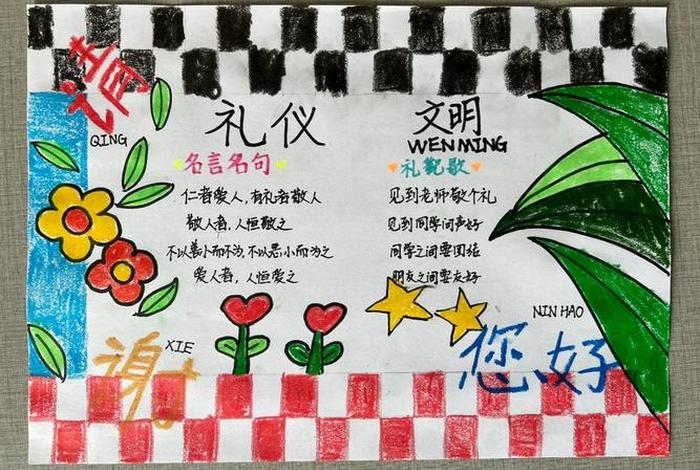 请
QING
礼仪
名言名句
仁者爱人,有礼者敬人
敬人者,人恒敬之
不以善小而不为,不以恶小而为之
爱人者,人恒爱之
文明
WENMING
礼貌歌
见到老师敬个礼
见到同学问声好
同学之间要团结
朋友之间要友好
谢
XIE
NIN HAO
您好